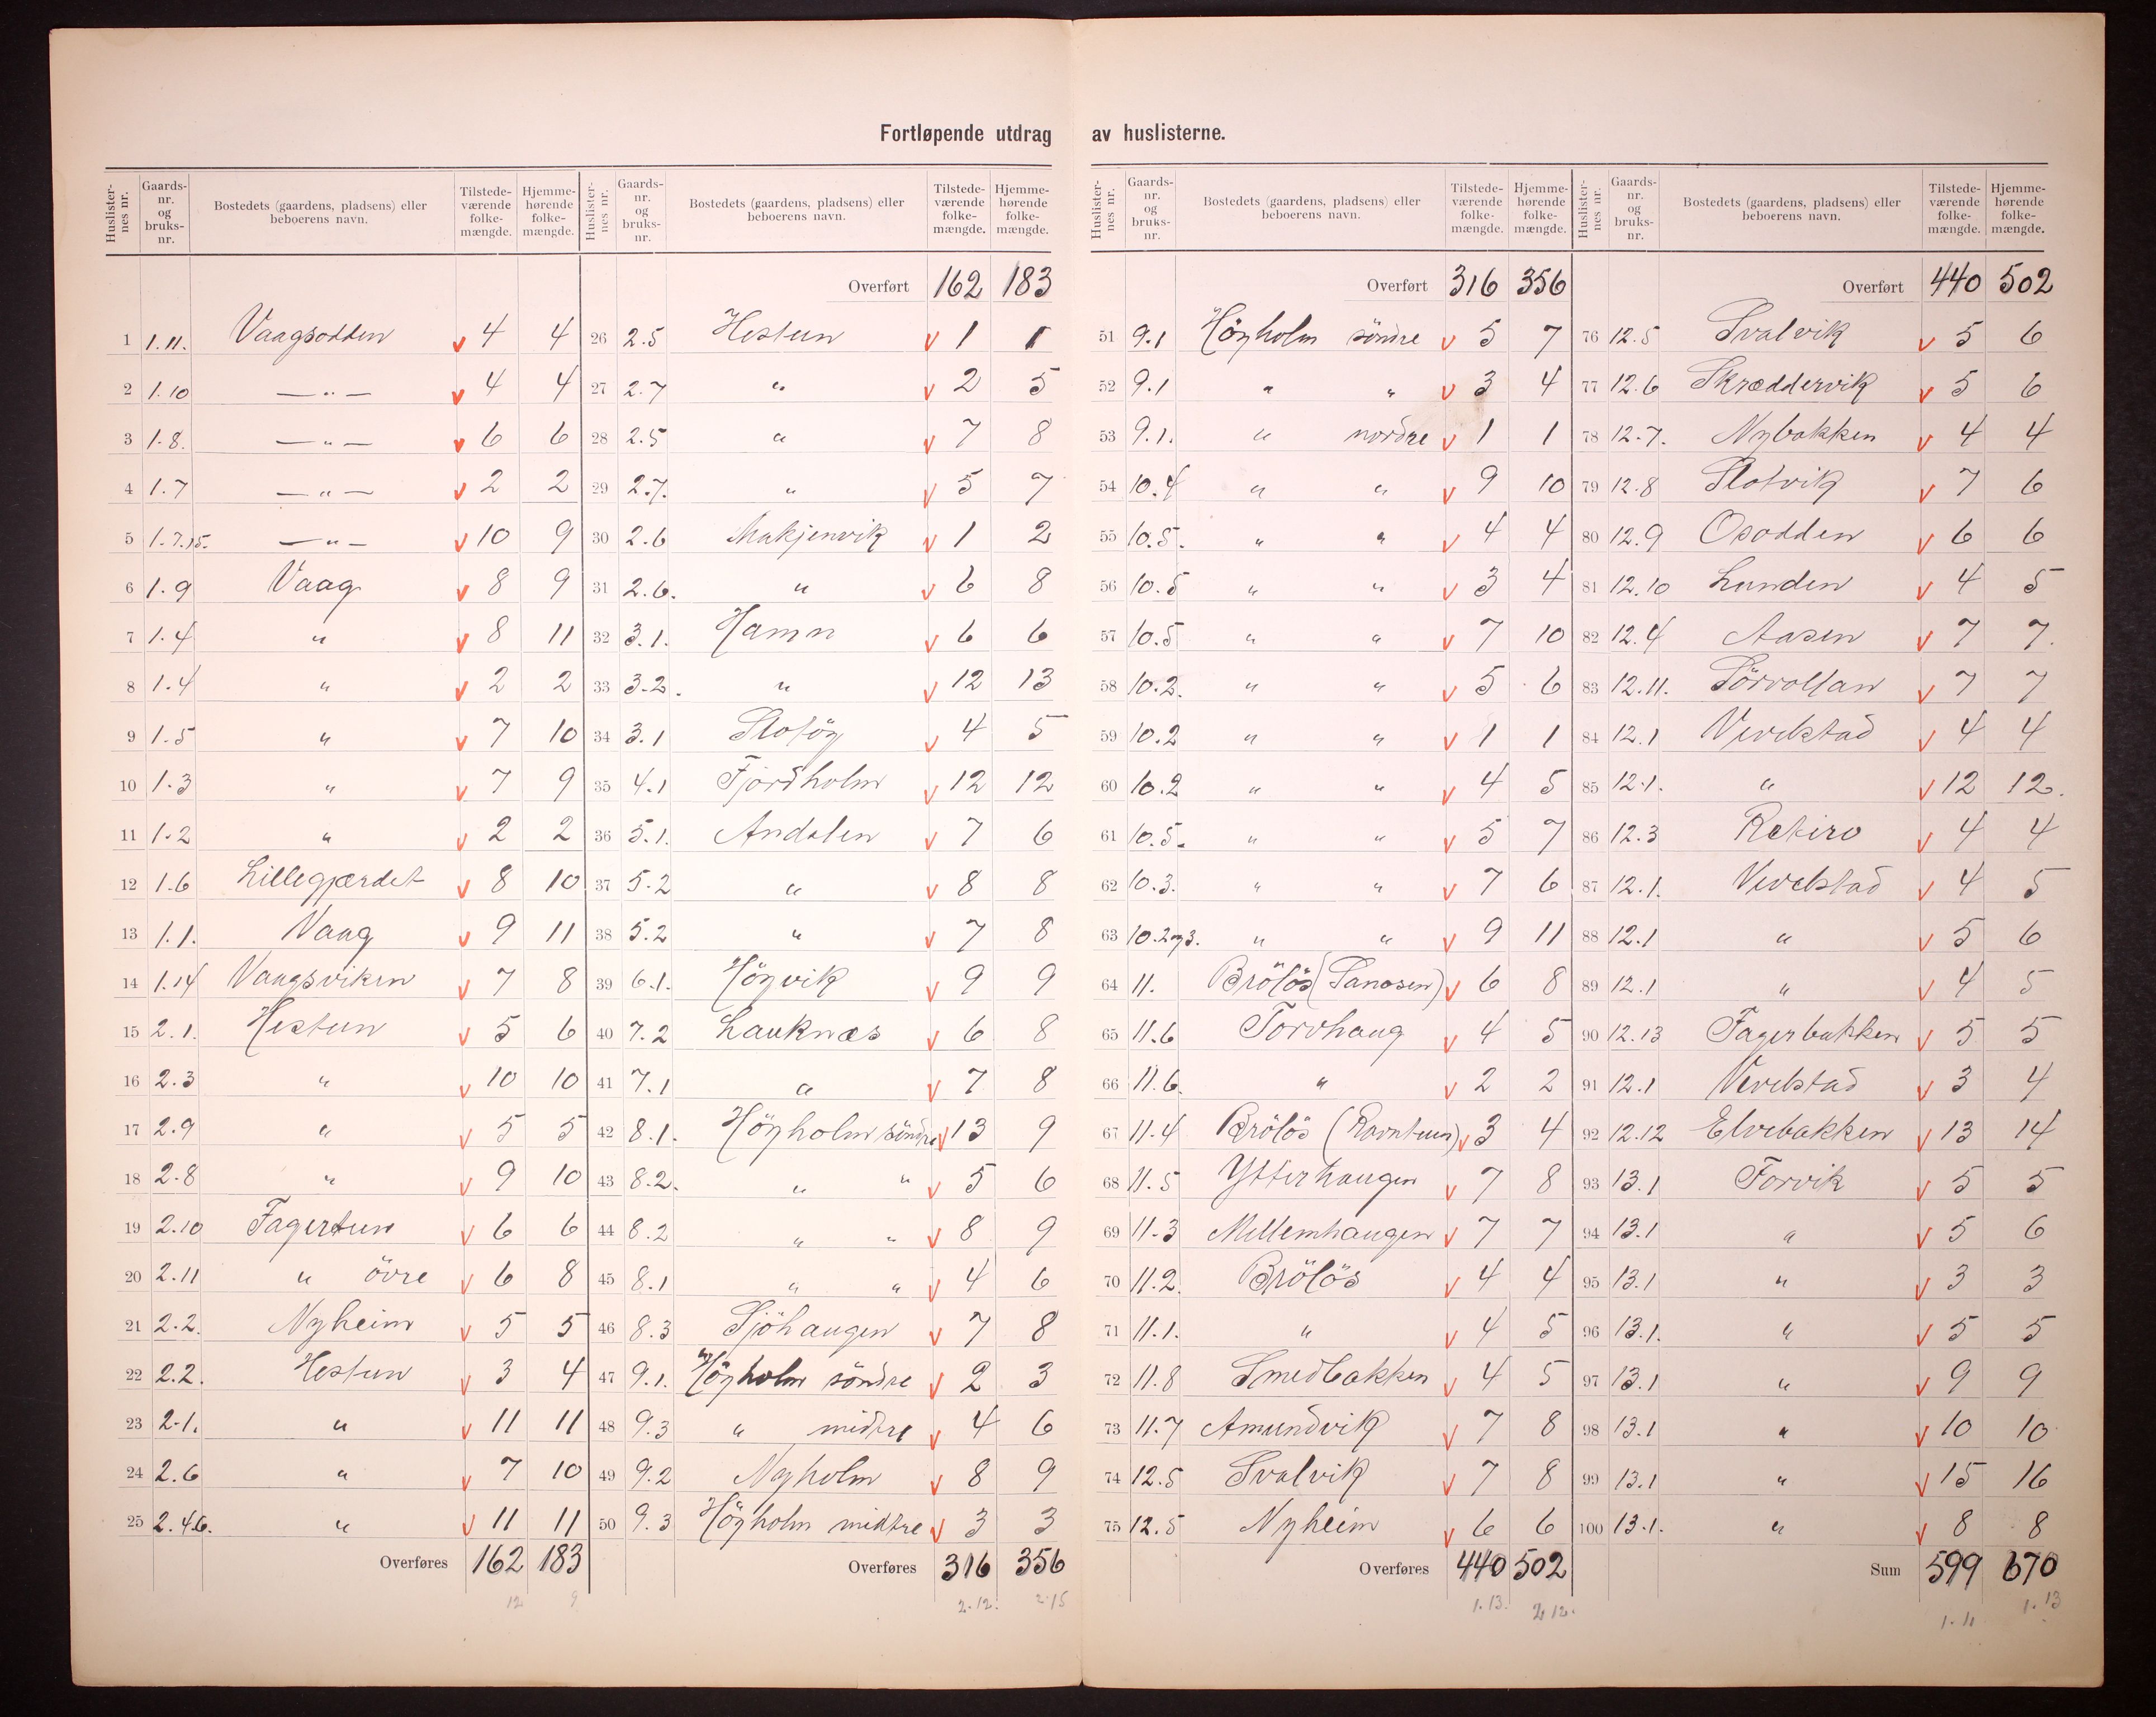 Fortløpende utdrag av huslisterne.
Huslister-nes nr. Gaards-nr. og bruks-nr. Bostedets (gaardens, pladsens) eller beboerens navn. Tilstede-værende folke-mængde. Hjemme-hørende folke-mængde.
1 1.11. Vaagsodden v 4 4
2 1.10 — " — v 4 4
3 1.8. — " — v 6 6
4 1.7 — " — v 2 2
5 1.7.15. — " — v 10 9
6 1.9 Vaag v 8 9
7 1.4 " v 8 11
8 1.4 " v 2 2
9 1.5 " v 7 10
10 1.3 " v 7 9
11 1.2 " v 2 2
12 1.6 Lillegjærdet v 8 10
13 1.1. Vaag v 9 11
14 1.14 Vaagsviken v 7 8
15 2.1. Hestun v 5 6
16 2.3 " v 10 10
17 2.9 " v 5 5
18 2.8 " v 9 10
19 2.10 Fagertun v 6 6
20 2.11 " övre v 6 8
21 2.2. Nyheim v 5 5
22 2.2. Hestun v 3 4
23 2.1. " v 11 11
24 2.6 " v 7 10
25 2.4.6. " v 11 11
Overføres 162 183
12 9
Huslister-nes nr. Gaards-nr. og bruks-nr. Bostedets (gaardens, pladsens) eller beboerens navn. Tilstede-værende folke-mængde. Hjemme-hørende folke-mængde.
Overført 162 183
26 2.5 Hestun v 1 1
27 2.7 " v 2 5
28 2.5 " v 7 8
29 2.7. " v 5 7
30 2.6 Makjenvik v 1 2
31 2.6. " v 6 8
32 3.1. Hamn v 6 6
33 3.2. " v 12 13
34 3.1 Slotöy v 4 5
35 4.1 Fjordholm v 12 12
36 5.1. Andalen v 7 6
37 5.2 " v 8 8
38 5.2 " v 7 8
39 6.1. Höyvik v 9 9
40 7.2 Lauknæs v 6 8
41 7.1 " v 7 8
42 8.1. Höyholm söndre v 13 9
43 8.2. " " v 5 6
44 8.2 " " v 8 9
45 8.1 " " v 4 6
46 8.3 Sjöhaugen v 7 8
47 9.1. Höyholm söndre v 2 3
48 9.3 " midtre v 4 6
49 9.2 Nyholm v 8 9
50 9.3 Höyholm midtre v 3 3
Overføres 316 356
2.12. 2.15
Huslister-nes nr. Gaards-nr. og bruks-nr. Bostedets (gaardens, pladsens) eller beboerens navn. Tilstede-værende folke-mængde. Hjemme-hørende folke-mængde.
Overført 316 356
51 9.1 Höyholm söndre v 5 7
52 9.1 " " v 3 4
53 9.1. " nordre v 1 1
54 10.4 " " v 9 10
55 10.5. " " v 4 4
56 10.5 " " v 3 4
57 10.5 " " v 7 10
58 10.2. " " v 5 6
59 10.2 " " v 1 1
60 10.2 " " v 4 5
61 10.5. " " v 5 7
62 10.3. " " v 7 6
63 10.2og3. " " v 9 11
64 11. Brölös (Sanosen) v 6 8
65 11.6 Torvhaug v 4 5
66 11.6. " v 2 2
67 11.4 Brölös (Ravntun) v 3 4
68 11.5 Ytterhaugen v 7 8
69 11.3 Mellemhaugen v 7 7
70 11.2. Brölös v 4 4
71 11.1. " v 4 5
72 11.8 Smedbakken v 4 5
73 11.7 Amundvik v 7 8
74 12.5 Svalvik v 7 8
75 12.5 Nyheim v 6 6
Overføres 440 502
1.13. 2.12.
Huslister-nes nr. Gaards-nr. og bruks-nr. Bostedets (gaardens, pladsens) eller beboerens navn. Tilstede-værende folke-mængde. Hjemme-hørende folke-mængde.
Overført 440 502
76 12.5 Svalvik v 5 6
77 12.6 Skræddervik v 5 6
78 12.7. Nybakken v 4 4
79 12.8 Slotvik v 7 6
80 12.9 Osodden v 6 6
81 12.10 Lunden v 4 5
82 12.4 Aasen v 7 7.
83 12.11. Sörvollan v 7 7
84 12.1 Vevelstad v 4 4
85 12.1. " v 12 12.
86 12.3 Retiro v 4 4
87 12.1. Vevelstad v 4 5
88 12.1 " v 5 6
89 12.1 " v 4 5
90 12.13 Fagerbakken v 5 5
91 12.1 Vevelstad v 3 4
92 12.12 Elvebakken v 13 14
93 13.1 Forvik v 5 5
94 13.1 " v 5 6
95 13.1 " v 3 3
96 13.1. " v 5 5
97 13.1 " v 9 9
98 13.1 " v 10 10
99 13.1 " v 15 16
100 13.1. " v 8 8
Sum 599 670
1.11 1.13